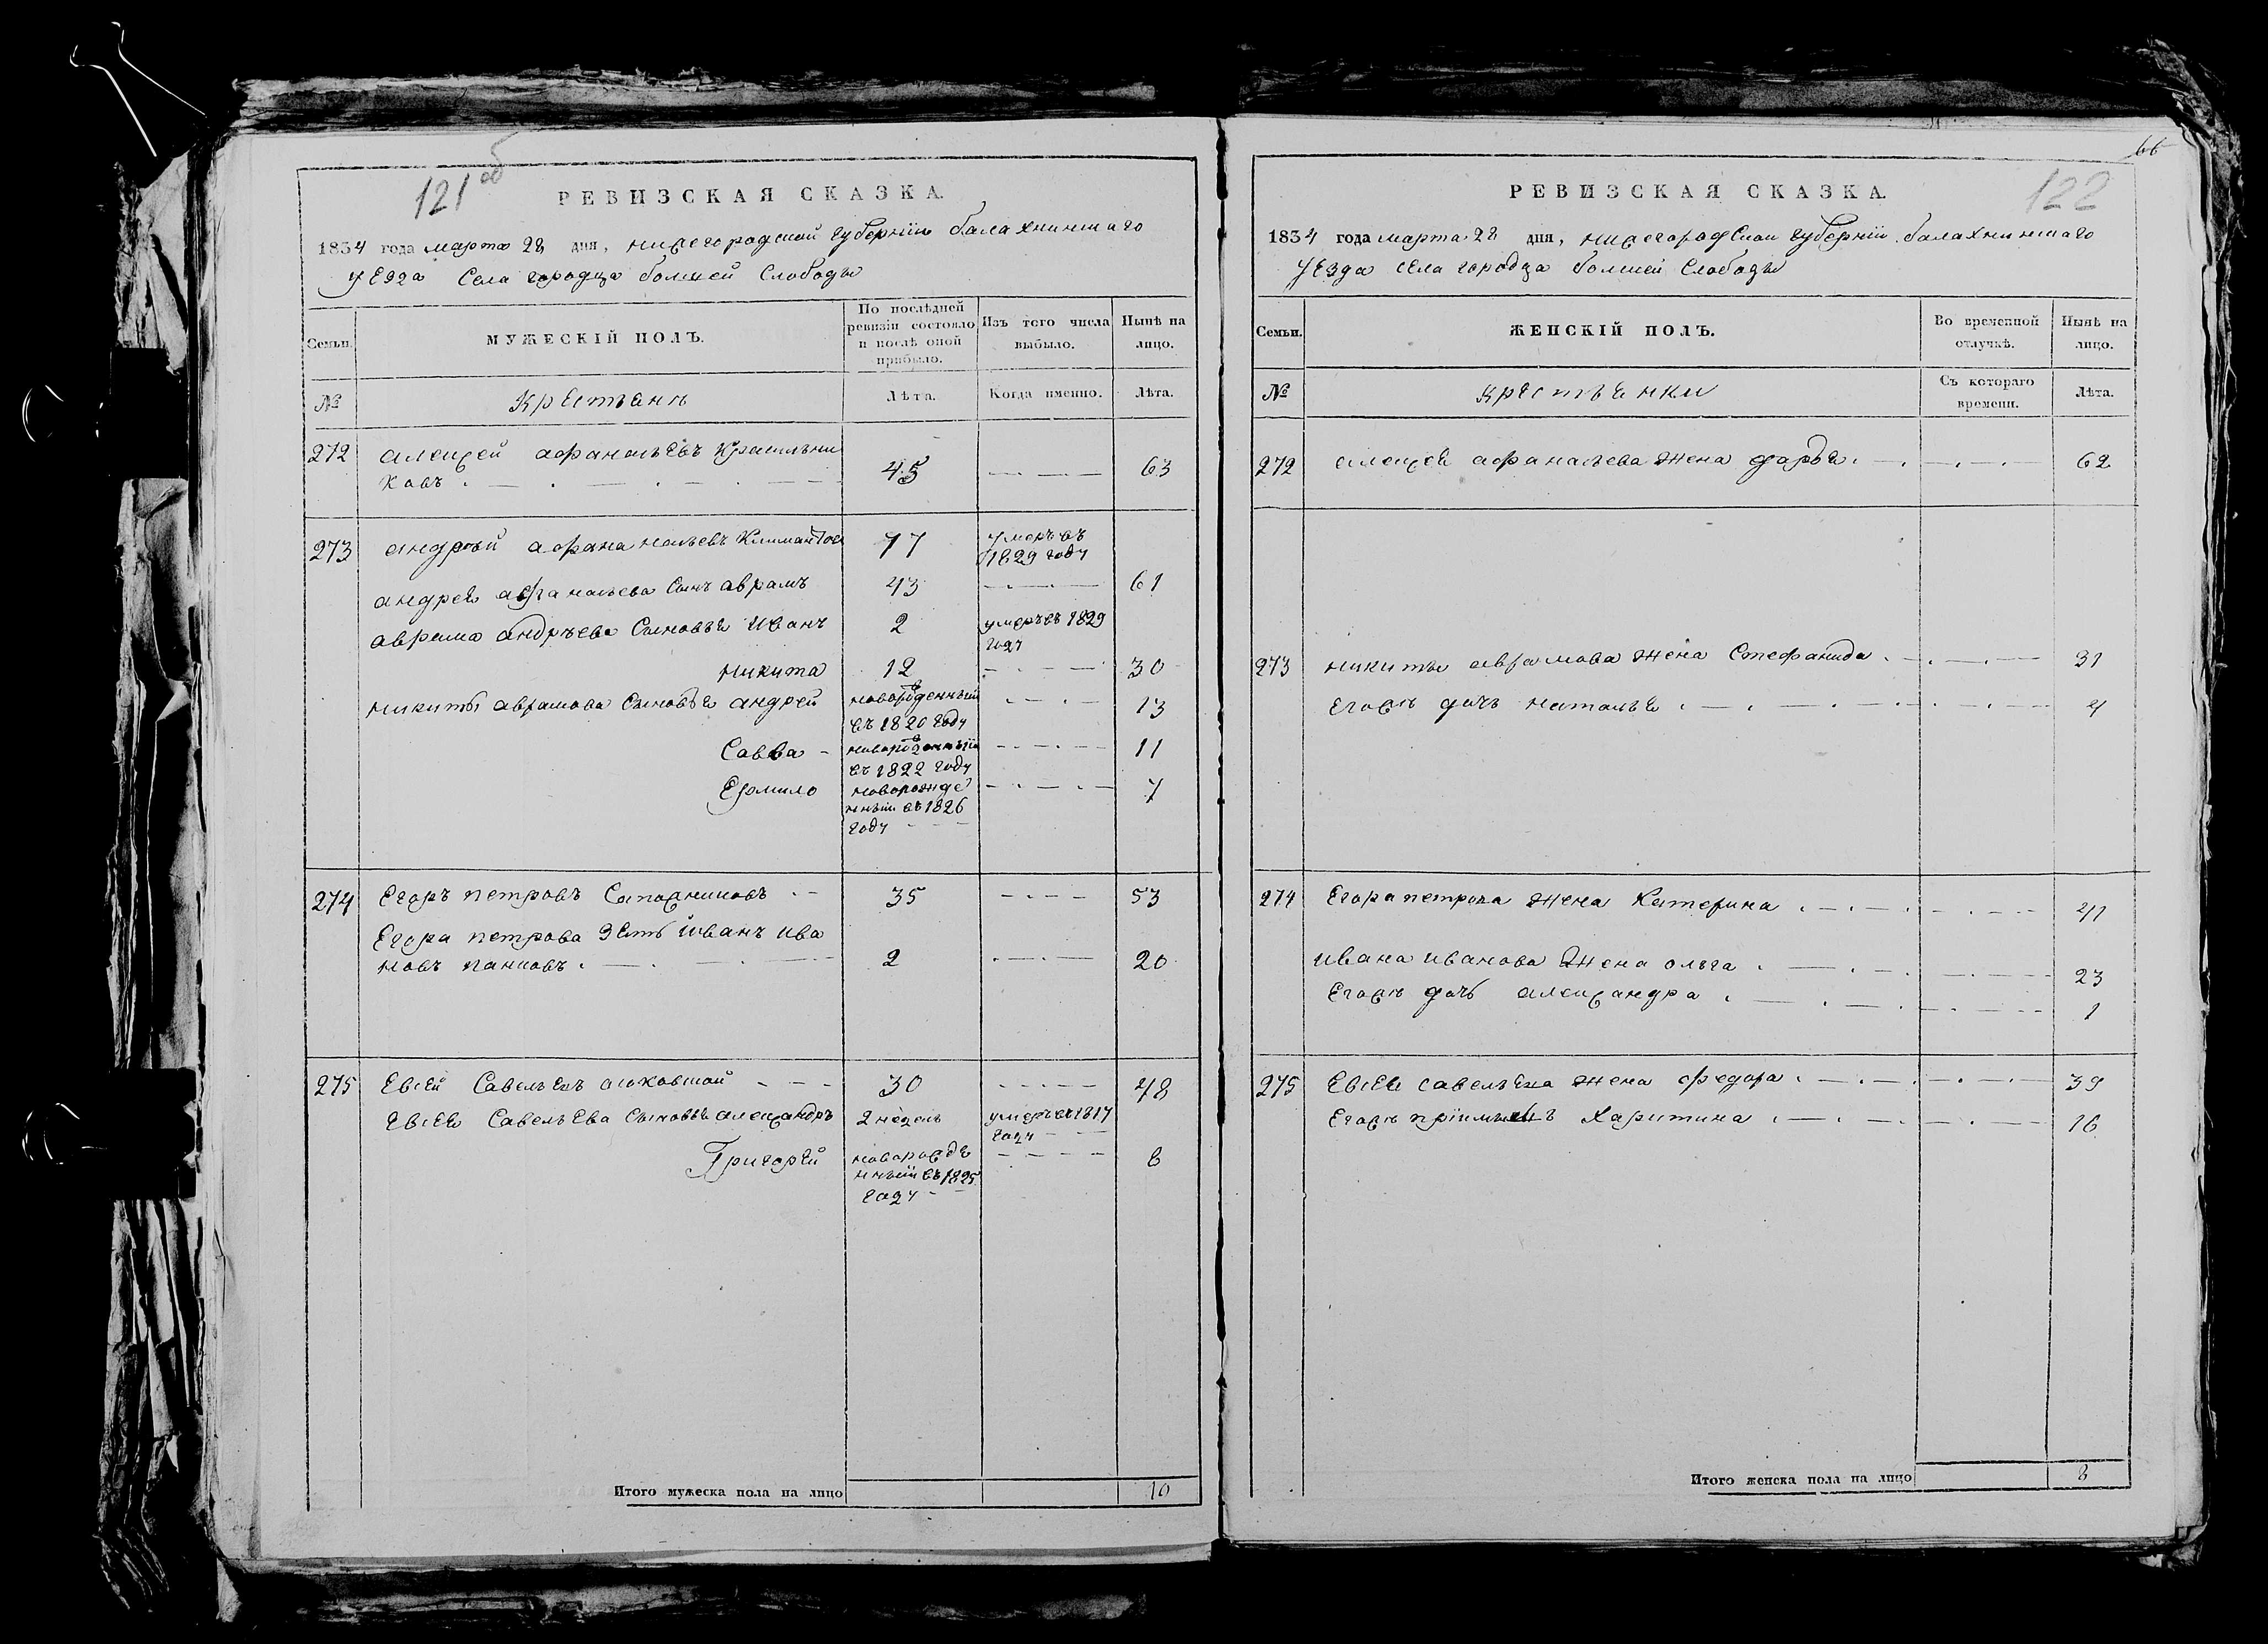 121 об
РЕВИЗСКАЯ СКАЗКА.
1834 года марта 28 дня, нижегородской губернїи балахнинскаго
уезда села городца болшей Слободы
Семьи.
МУЖЕСКІЙ ПОЛЪ.
По послѣдней ревизіи состояло и послѣ оной прибыло.
Изъ того числа выбыло.
Нынѣ на лицо.
№
Крестьянъ
Лѣта.
Когда именно.
Лѣта.
272 алексей афанасьевъ Красильни
ковъ 45 63
273 андрей афанасьевъ Климантов 77 умеръ въ 1829 году
андрея афанасьева Сынъ аврамъ 43 61
аврама андрѣева Сыновья иванъ 2 умеръ въ 1829 году
никита 12 30
никиты аврамова Сыновья андрей новорожденный въ 1820 году 13
Савва новорожденный въ 1822 году 11
Ермило новорожде нный въ 1826 году 7
274 Егоръ петровъ Сапожниковъ 35 53
Егора петрова Зять иванъ ива
новъ панковъ 2 20
275 Евсей Савельевъ 30 48
Евсея Савельева Сыновья александръ 2 недель умеръ въ 1817 году
Григорей новорожде нный въ 1825 году 8
Итого мужеска пола на лицо 10
66
122
РЕВИЗСКАЯ СКАЗКА.
1834 года марта 28 дня, нижегородской губернїи балахнинскаго
уезда села городца болшей Слободы
Семьи.
ЖЕНСКІЙ ПОЛЪ.
Во временной отлучкѣ.
Нынѣ на лицо.
№
крестьянки
Съ котораго времени.
Лѣта.
272 алексея афанасьева жена дарья 62
273 никиты аврамова жена Стефанида 31
Егожъ дочь наталья 4
274 Егора петрова жена Катерина 41
ивана иванова жена ольга 23
Егожъ дочь александра 1
275 Евсея савельева жена федора 39
Егожъ Харитина 16
Итого женска пола на лицо 8